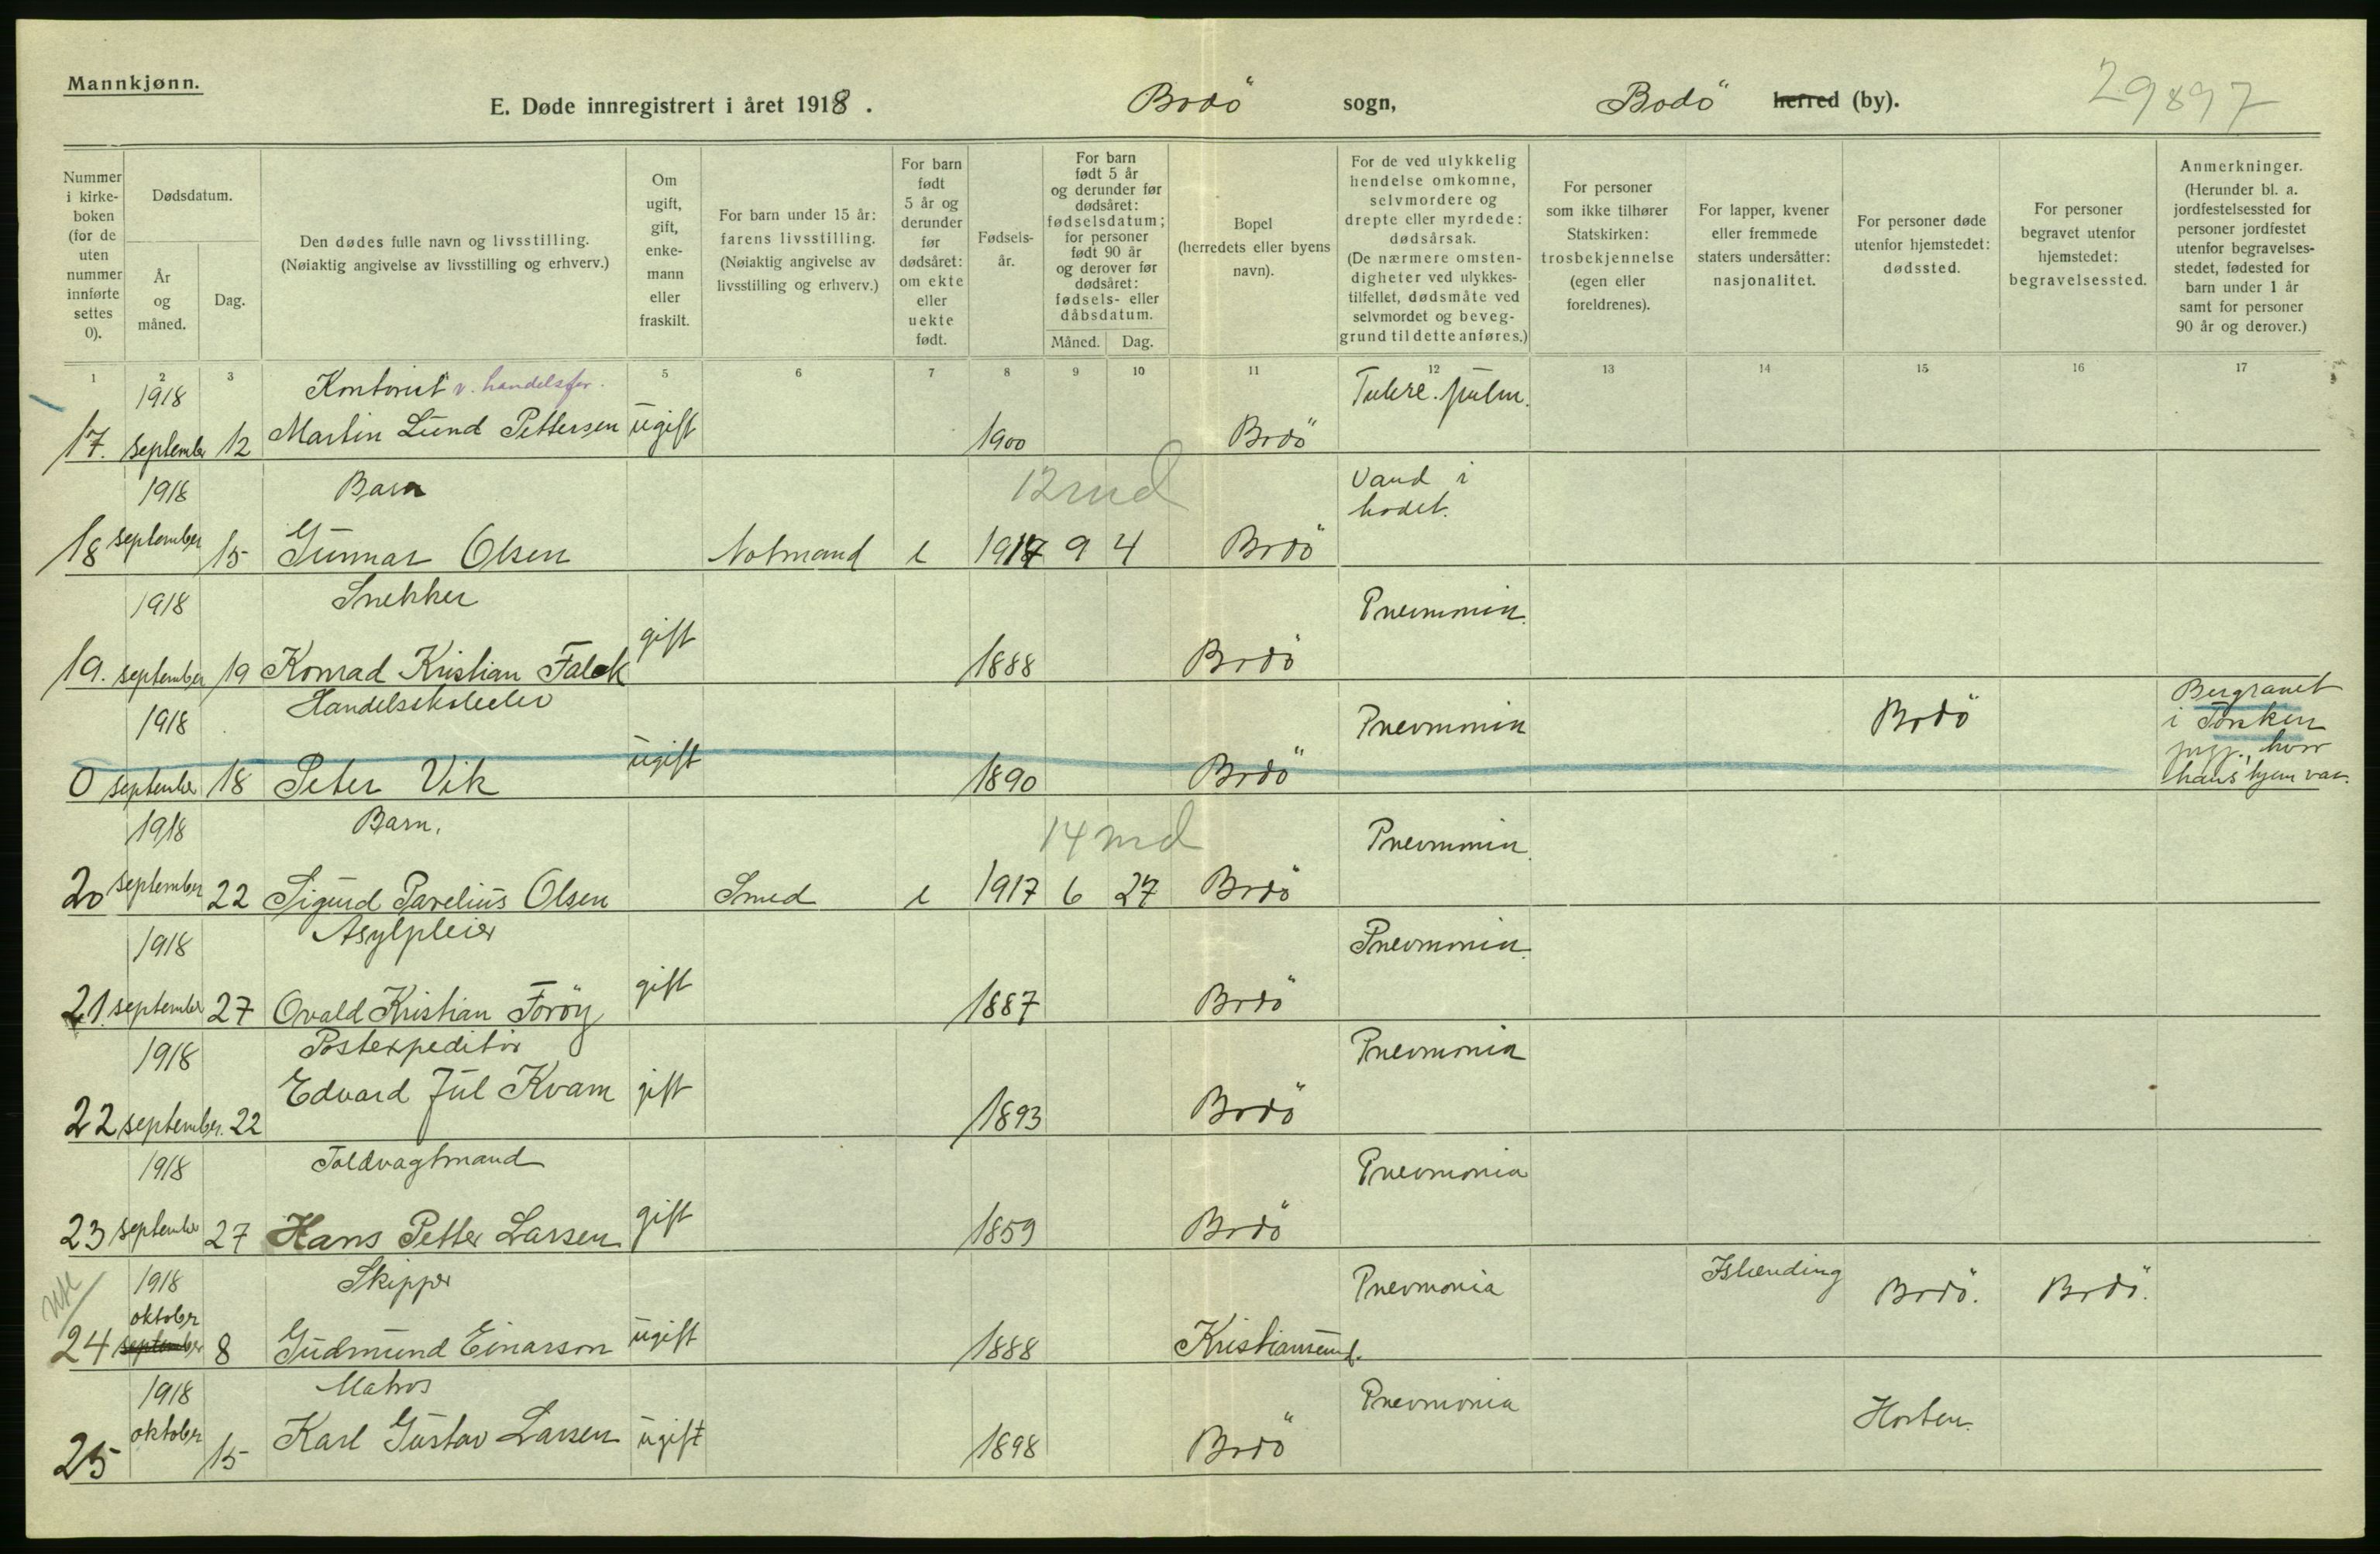 Mannkjønn.
E. Døde innregistrert i året 1918. Bodö sogn, Bodö herred (by). 29897
Nummer i kirkeboken (for de uten nummer innførte settes 0).
Dødsdatum.
År og måned.
Dag.
Den dødes fulle navn og livsstilling.
(Nøiaktig angivelse av livsstilling og erhverv.)
Om ugift, gift, enkemann eller fraskilt.
For barn under 15 år: farens livsstilling. (Nøiaktig angivelse av livsstilling og erhverv.)
For barn født 5 år og derunder før dødsåret: om ekte eller uekte født.
Fødselsår.
For barn født 5 år og derunder før dødsåret: fødselsdatum; for personer født 90 år og derover før dødsåret: fødsels- eller dåbsdatum.
Måned. Dag.
Bopel (herredets eller byens navn).
For de ved ulykkelig hendelse omkomne, selvmordere og drepte eller myrdede: dødsårsak. (De nærmere omstendigheter ved ulykkestilfellet, dødsmåte ved selvmordet og beveggrund til dette anføres.)
For personer som ikke tilhører Statskirken: trosbekjennelse (egen eller foreldrenes).
For lapper, kvener eller fremmede staters undersåtter: nasjonalitet.
For personer døde utenfor hjemstedet: dødssted.
For personer begravet utenfor hjemstedet: begravelsessted.
Anmerkninger. (Herunder bl. a. jordfestelsessted for personer jordfestet utenfor begravelsesstedet, fødested for barn under 1 år samt for personer 90 år og derover.)
1 2 3 5 6 7 8 9 10 11 12 13 14 15 16 17
1918 Kontorist v. handelsfor. Tuberc. pulm.
17. september 12 Martin Lund Pettersen ugift 1900 Bodö
1918 Barn 12 md Vand i hodet.
18 september 15 Gunnar Olsen Notmand e 1917 9 4 Bodö
1918 Snekker Pneumonia.
19. september 19 Konrad Kristian Falck gift 1888 Bodö
1918 Handelsskoleelev Pneumonia Bodö Begravet i Torsken prgj., hvor hans hjem var.
0 september 18 Peter Vik ugift 1890 Bodö
1918 Barn. 14 md Pneumonia.
20 september 22 Sigurd Parelius Olsen Smed e 1917 6 27 Bodö
1918 Asylpleier Pneumonia.
21. september 27 Ovald Kristian Foröy gift 1887 Bodö
1918 Postexpeditör Pneumonia
22 september. 22 Edvard Jul Kvam gift 1893 Bodö
1918 Toldvagtmand Pneumonia
23 september 27 Hans Petter Larsen gift 1859 Bodö
1918 Skipper Pneumonia Islænding Bodö. Bodö.
24 oktober september 8 Gudmund Einarson ugift 1888 Kristiansund.
1918 Matros Pneumonia Horten.
25 oktober 15 Karl Gustav Larsen ugift 1898 Bodö